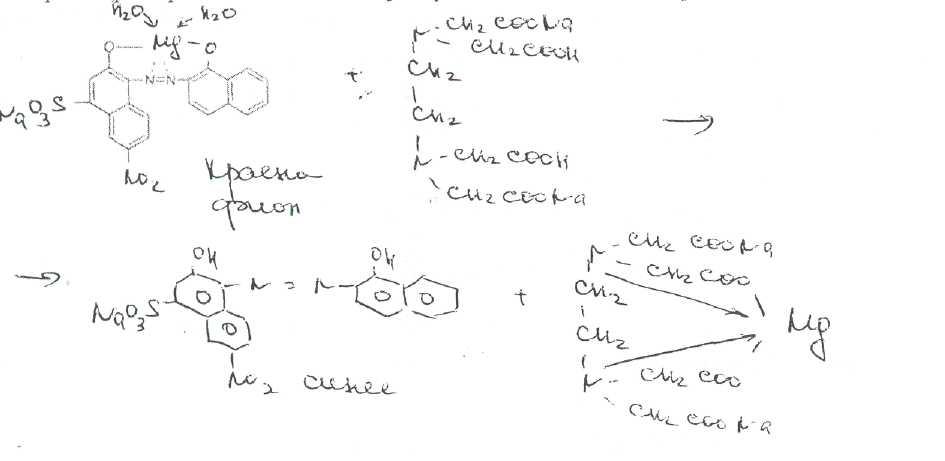 H₂O H₂O
O — Mg — O
N=N
NaO₃S
NO₂
+
N - CH₂ COONa
- CH₂ COOH
CH₂
CH₂
N - CH₂ COOH
CH₂ COONa
→
→
OH
NaO₃S
N = N
OH
NO₂ синее
+
N - CH₂ COONa
- CH₂ COO
CH₂
CH₂
N - CH₂ COO
CH₂ COONa
Mg